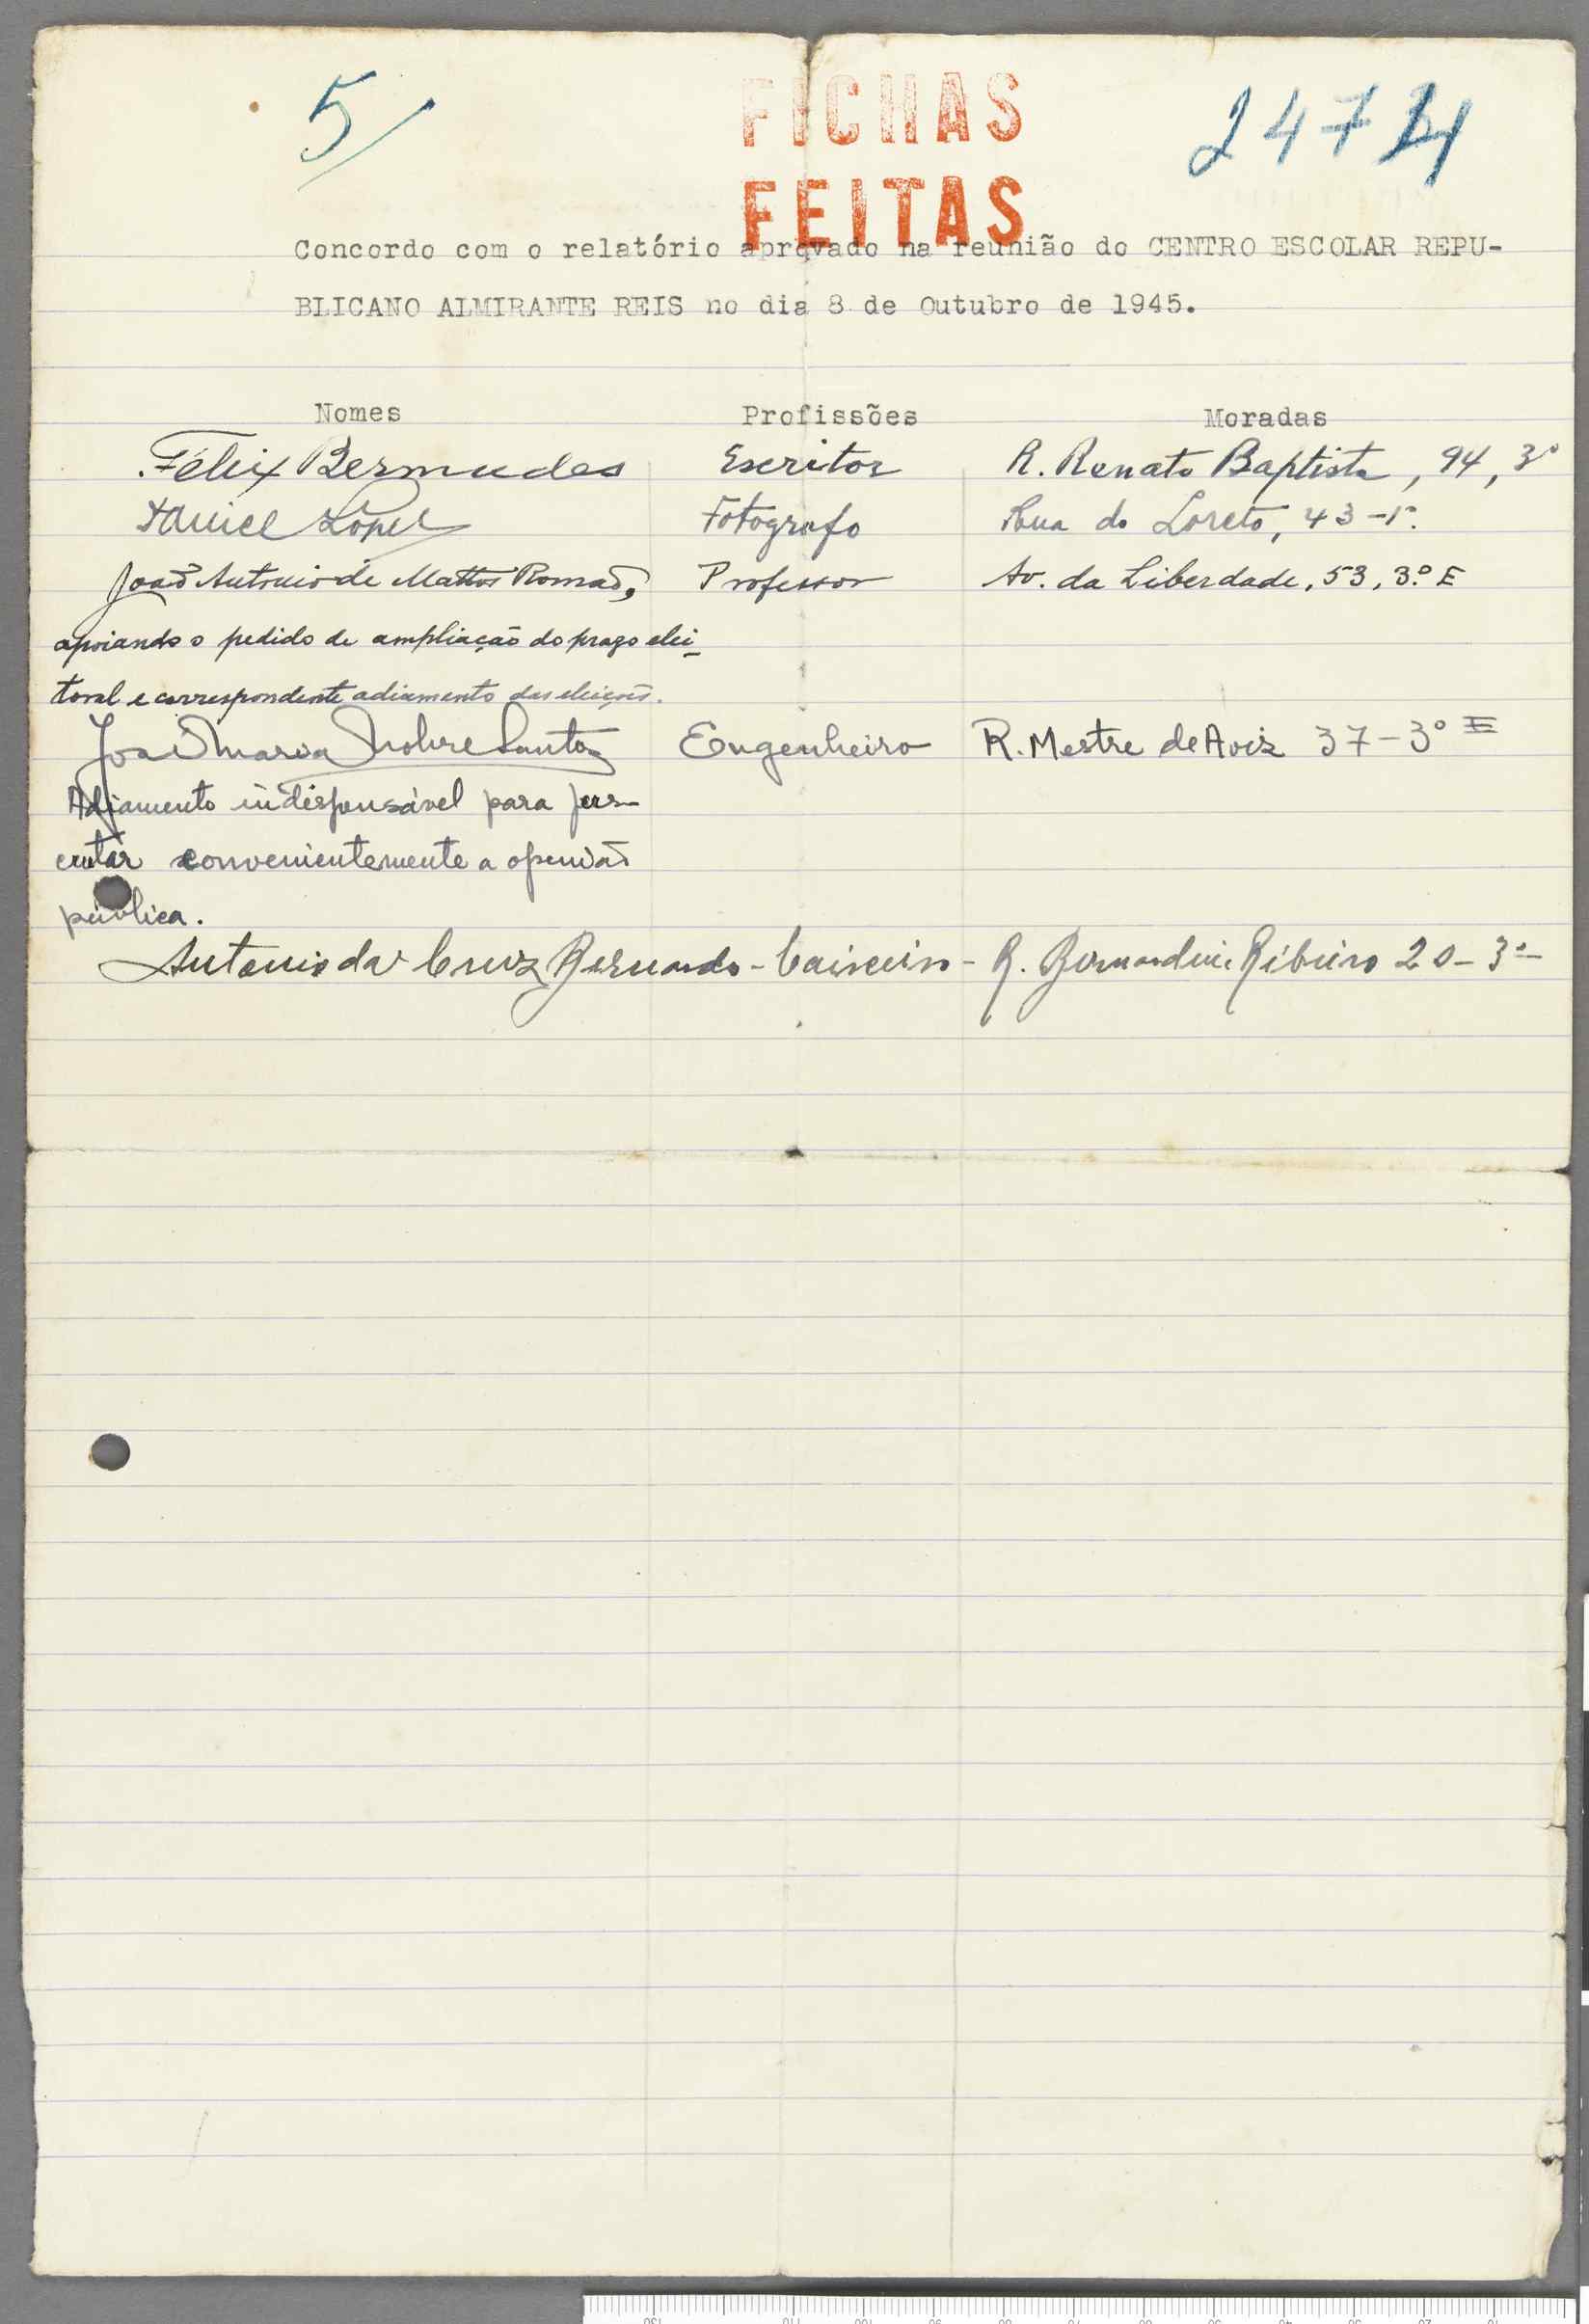 5/
FICHAS
FEITAS
Concordo com o relatório aprovado na reunião do CENTRO ESCOLAR REPU-
BLICANO ALMIRANTE REIS no dia 8 de Outubro de 1945.
Nomes Profissões Moradas
Félix Bermudes Escritor R. Renato Baptista, 94, 3º
Lopes Fotografo Rua do Loreto, 43-1º.
João Antonio de Mattos Romão, Professor Av. da Liberdade, 53, 3.º E
apoiando o pedido de ampliação do prazo elei-
toral e correspondente adiamento das eleições.
Maria Nobre Santos Engenheiro R. Mestre de Aviz 37-3º E
Adiamento indispensável para pers-
crutar convenientemente a openião
pública.
Antonio da Cruz Bernardo - Caixeiro - R. Bernardim Ribeiro 20-3º